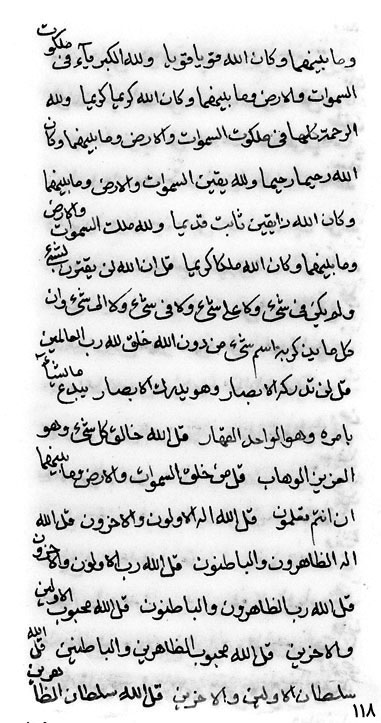 وما بينهما وكان الله قويا قويا ولله الكبرياء في ملكوت
السموات والارض وما بينهما وكان الله كريما كريما ولله
الرحمة كلها في ملكوت السموات والارض وما بينهما وكان
الله رحيما رحيما ولله يقين السموات والارض وما بينهما
وكان الله ذا يقين ثابت قديما ولله ملك السموات والارض
وما بينهما وكان الله ملكا كريما قل ان الله لن يقترن بشئ
ولم يكن في شئ ولا على شئ ولا في شئ ولا الى شئ وان
كل ما يذكر به اسم شئ من دون الله خلق لله رب العالمين
قل لن تدركه الابصار وهو يدرك الابصار يبدع ما يشاء
بامره وهو الواحد القهار قل الله خالق كل شئ وهو
العزيز الوهاب قل من خلق السموات والارض وما بينهما
ان انتم تعلمون قل الله اله الاولون والاخرون قل الله
اله الظاهرون والباطنون قل الله رب الاولون والاخرون
قل الله رب الظاهرون والباطنون قل الله محبوب الاولين
والاخرين قل الله محبوب الظاهرين والباطنين قل الله
سلطان الاولين والاخرين قل الله سلطان الظاهرين
١١٨